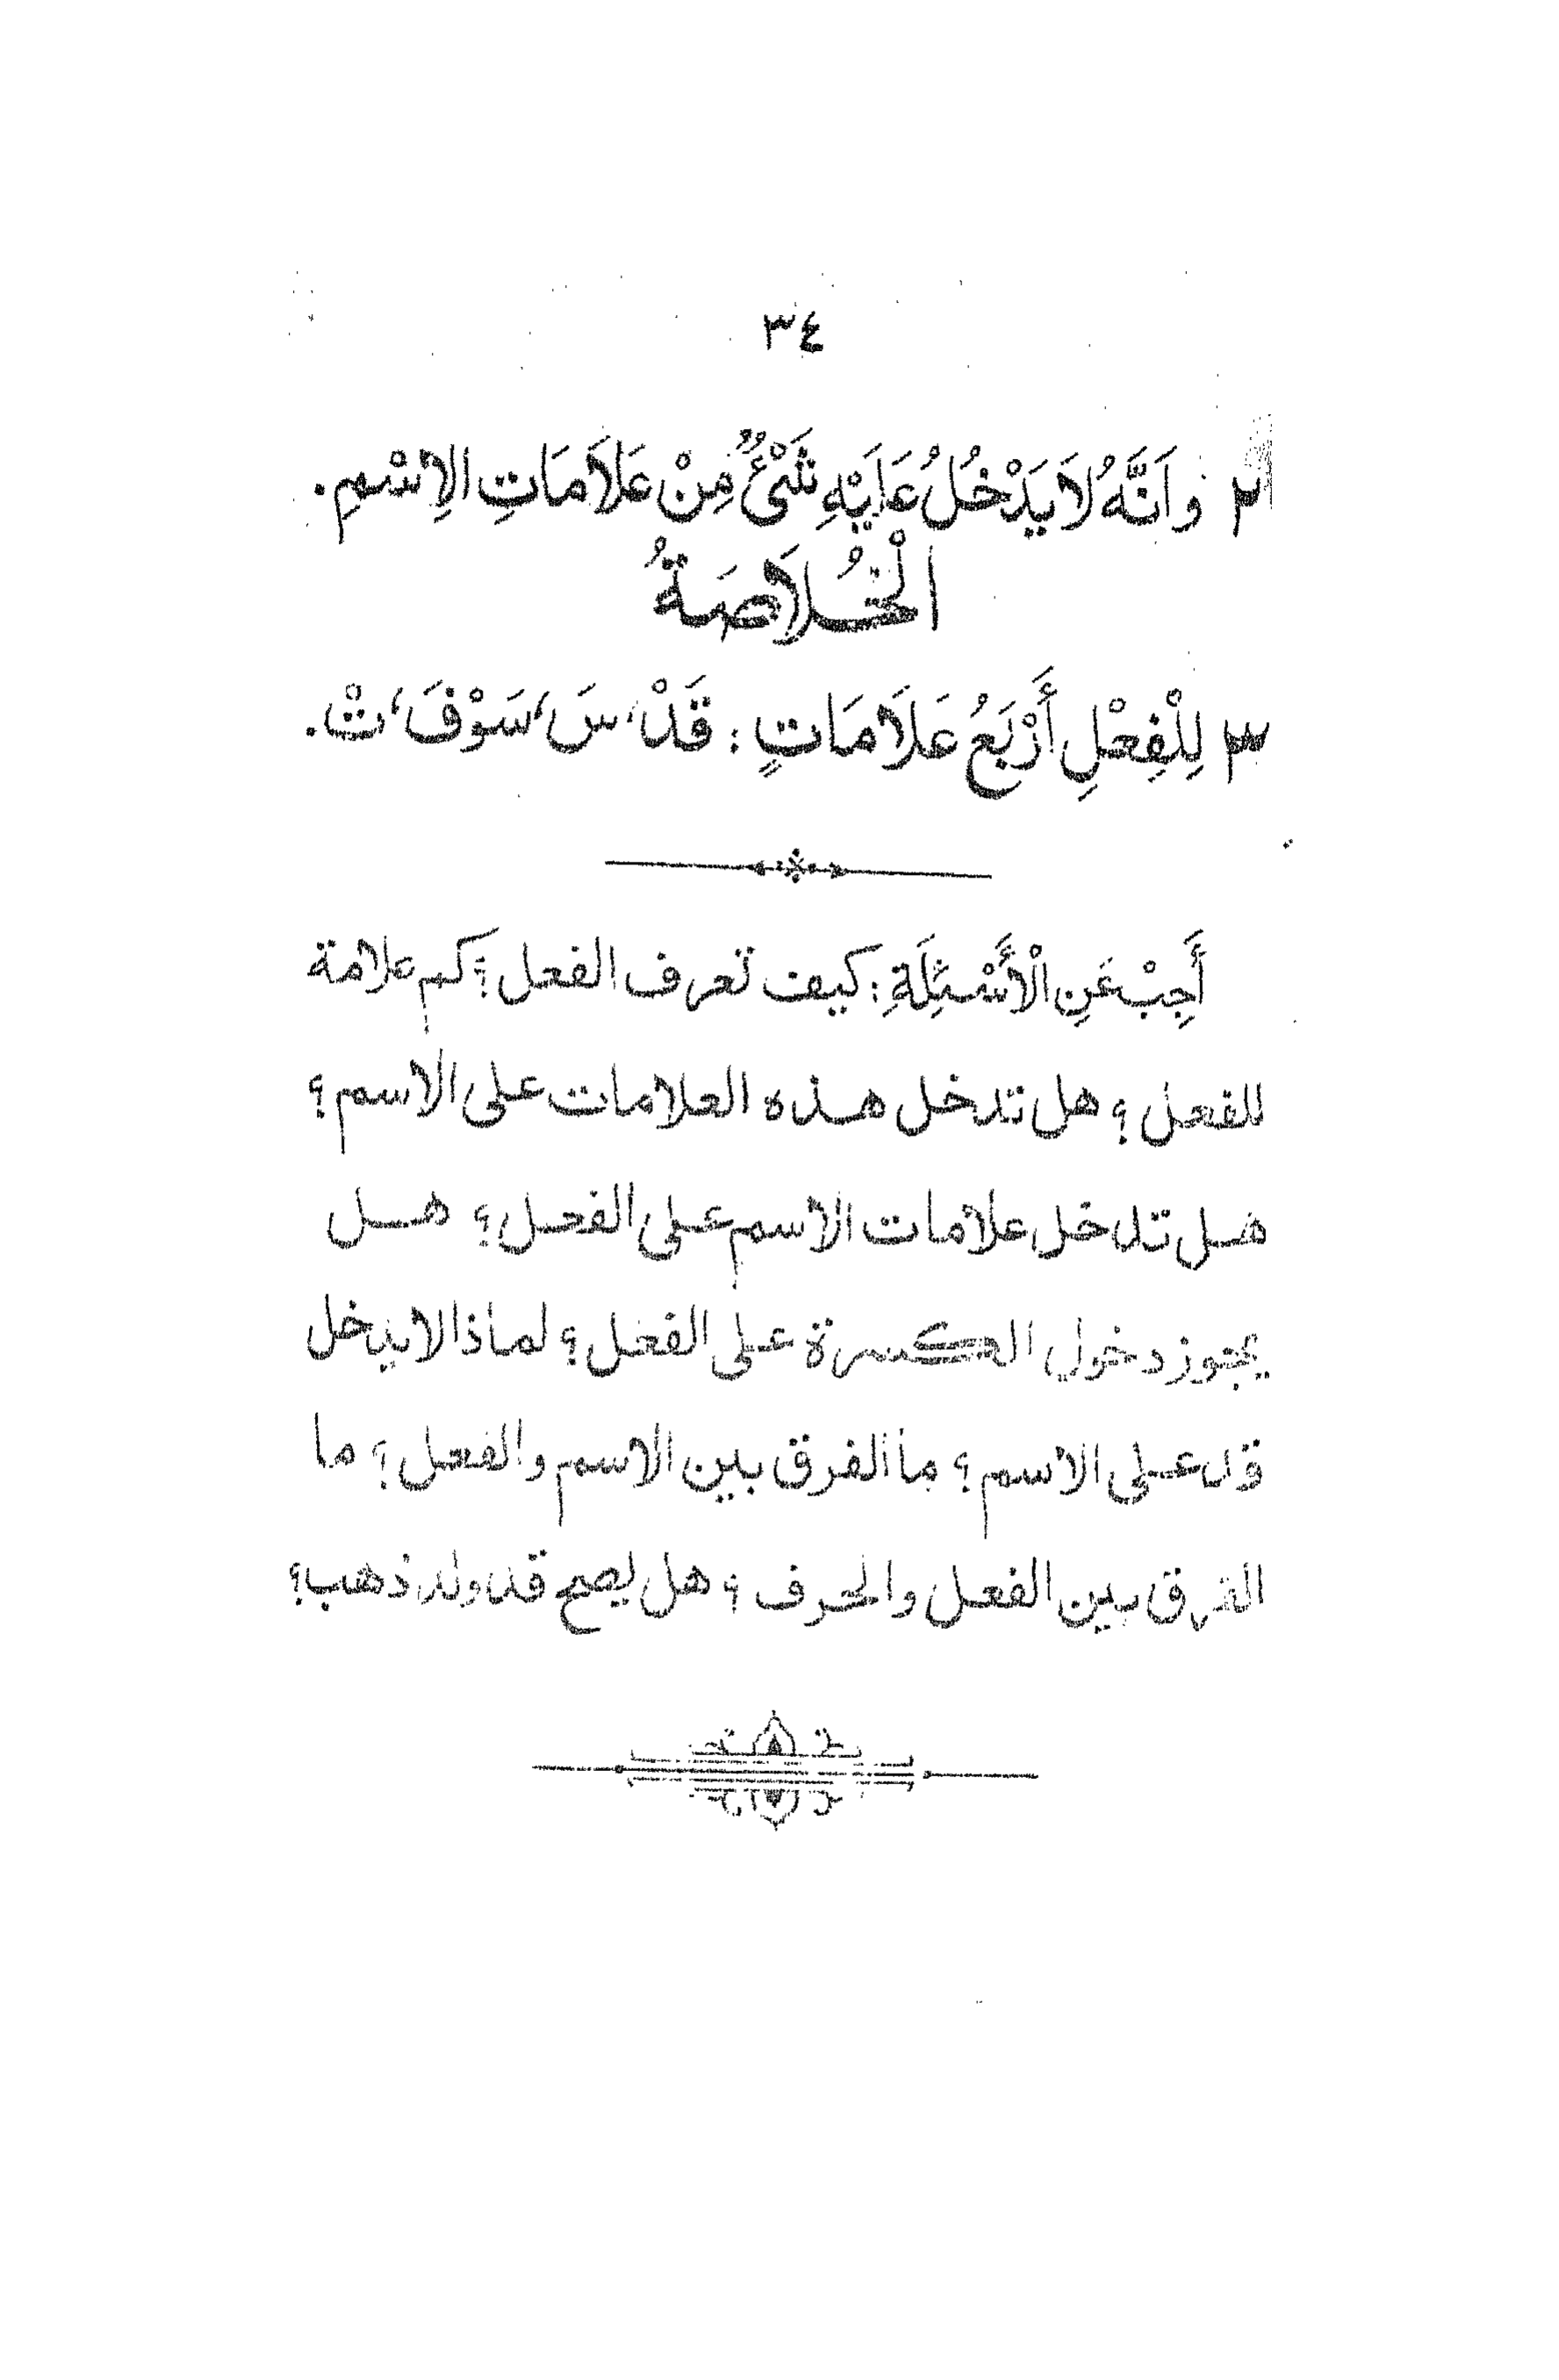 ٣٤
٢ وَاَنَّهُ لَا يَدْخُلُ عَلَيْهِ شَىْءٌ مِنْ عَلَامَاتِ الِاسْمِ.
الْخُلَاصَةُ
٣ لِلْفِعْلِ أَرْبَعُ عَلَامَاتٍ : قَدْ، سَ، سَوْفَ، تْ.
أَجِبْ عَنِ الْأَسْئِلَةِ : كيف تعرف الفعل ؟ كم علامة
للفعل ؟ هل تدخل هذه العلامات على الاسم ؟
هل تدخل علامات الاسم على الفعل ؟ هل
يجوز دخول الكسرة على الفعل ؟ لماذا لا يدخل
قد على الاسم ؟ ما الفرق بين الاسم والفعل ؟ ما
الفرق بين الفعل والحرف ؟ هل يصح قد ولد ذهب ؟